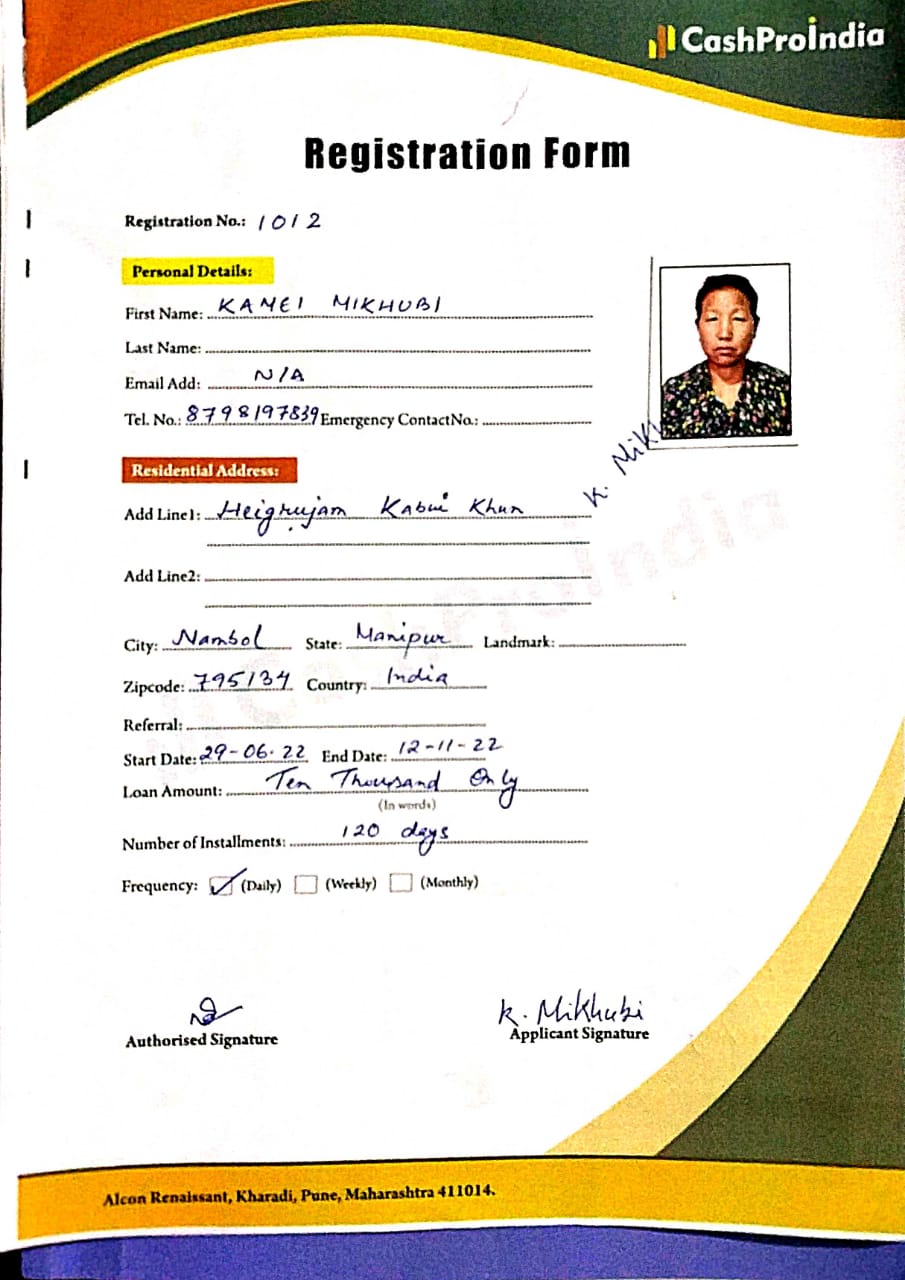 CashProIndia
Registration Form
Registration No.: 1012
Personal Details:
First Name: KAMEI MIKHUBI
Last Name:
Email Add: N/A
Tel. No.: 8798197839 Emergency ContactNo.:
K. Mikh
Residential Address:
Add Line1: Heigrujam Kabui Khun
Add Line2:
City: Nambol State: Manipur Landmark:
Zipcode: 795134 Country: India
Referral:
Start Date: 29-06-22 End Date: 12-11-22
Loan Amount: Ten Thousand Only
(In words)
Number of Installments: 120 days
Frequency: (Daily) (Weekly) (Monthly)
K. Mikhubi
Authorised Signature Applicant Signature
Alcon Renaissant, Kharadi, Pune, Maharashtra 411014.
CashProIndia